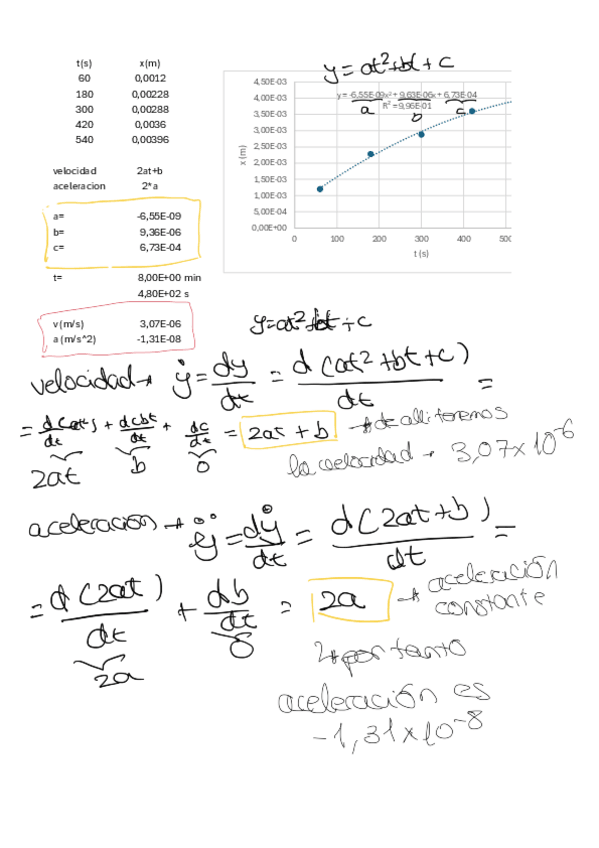 t(s) x(m)
60 0,0012
180 0,00228
300 0,00288
420 0,0036
540 0,00396
velocidad 2at+b
aceleracion 2*a
a= -6,55E-09
b= 9,36E-06
c= 6,73E-04
t= 8,00E+00 min
4,80E+02 s
v(m/s) 3,07E-06
a(m/s^2) -1,31E-08
y = at²+bt + c
4,50E-03
4,00E-03
3,50E-03
3,00E-03
2,50E-03
2,00E-03
1,50E-03
1,00E-03
5,00E-04
0,00E+00
x (m)
y = -6,55E-09x² + 9,63E-06x + 6,73E-04
R² = 9,96E-01
a b c
0 100 200 300 400 500
t (s)
y=at²+bt+c
velocidad → ẏ = dy/dt = d(at²+bt+c)/dt =
= d(at²)/dt + d(bt)/dt + dc/dt = 2at + b → de allí tenemos
2at b 0 la velocidad → 3,07x10^-6
aceleración → ÿ = dẏ/dt = d(2at+b)/dt =
= d(2at)/dt + db/dt = 2a → aceleración
constante
2a 0
por tanto
aceleración es
-1,31x10^-8